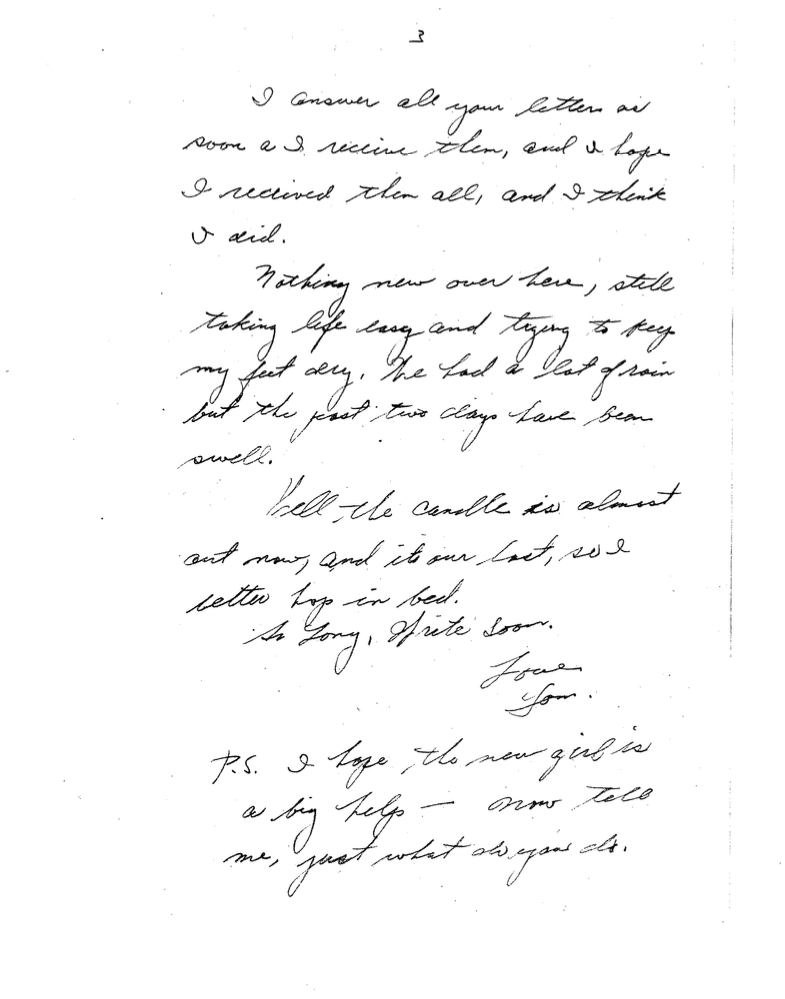 3
I answer all your letters as
soon a I receive them, and I hope
I received them all, and I think
I did.
Nothing new over here, still
taking life easy and trying to keep
my feet dry. We had a lot of rain
but the past two days have been
swell.
Well, the candle is almost
out now, and its our last, so I
better hop in bed.
So Long, Write Soon.
Love
Tom.
P.S. I hope the new girl is
a big help — now tell
me, just what do you do.